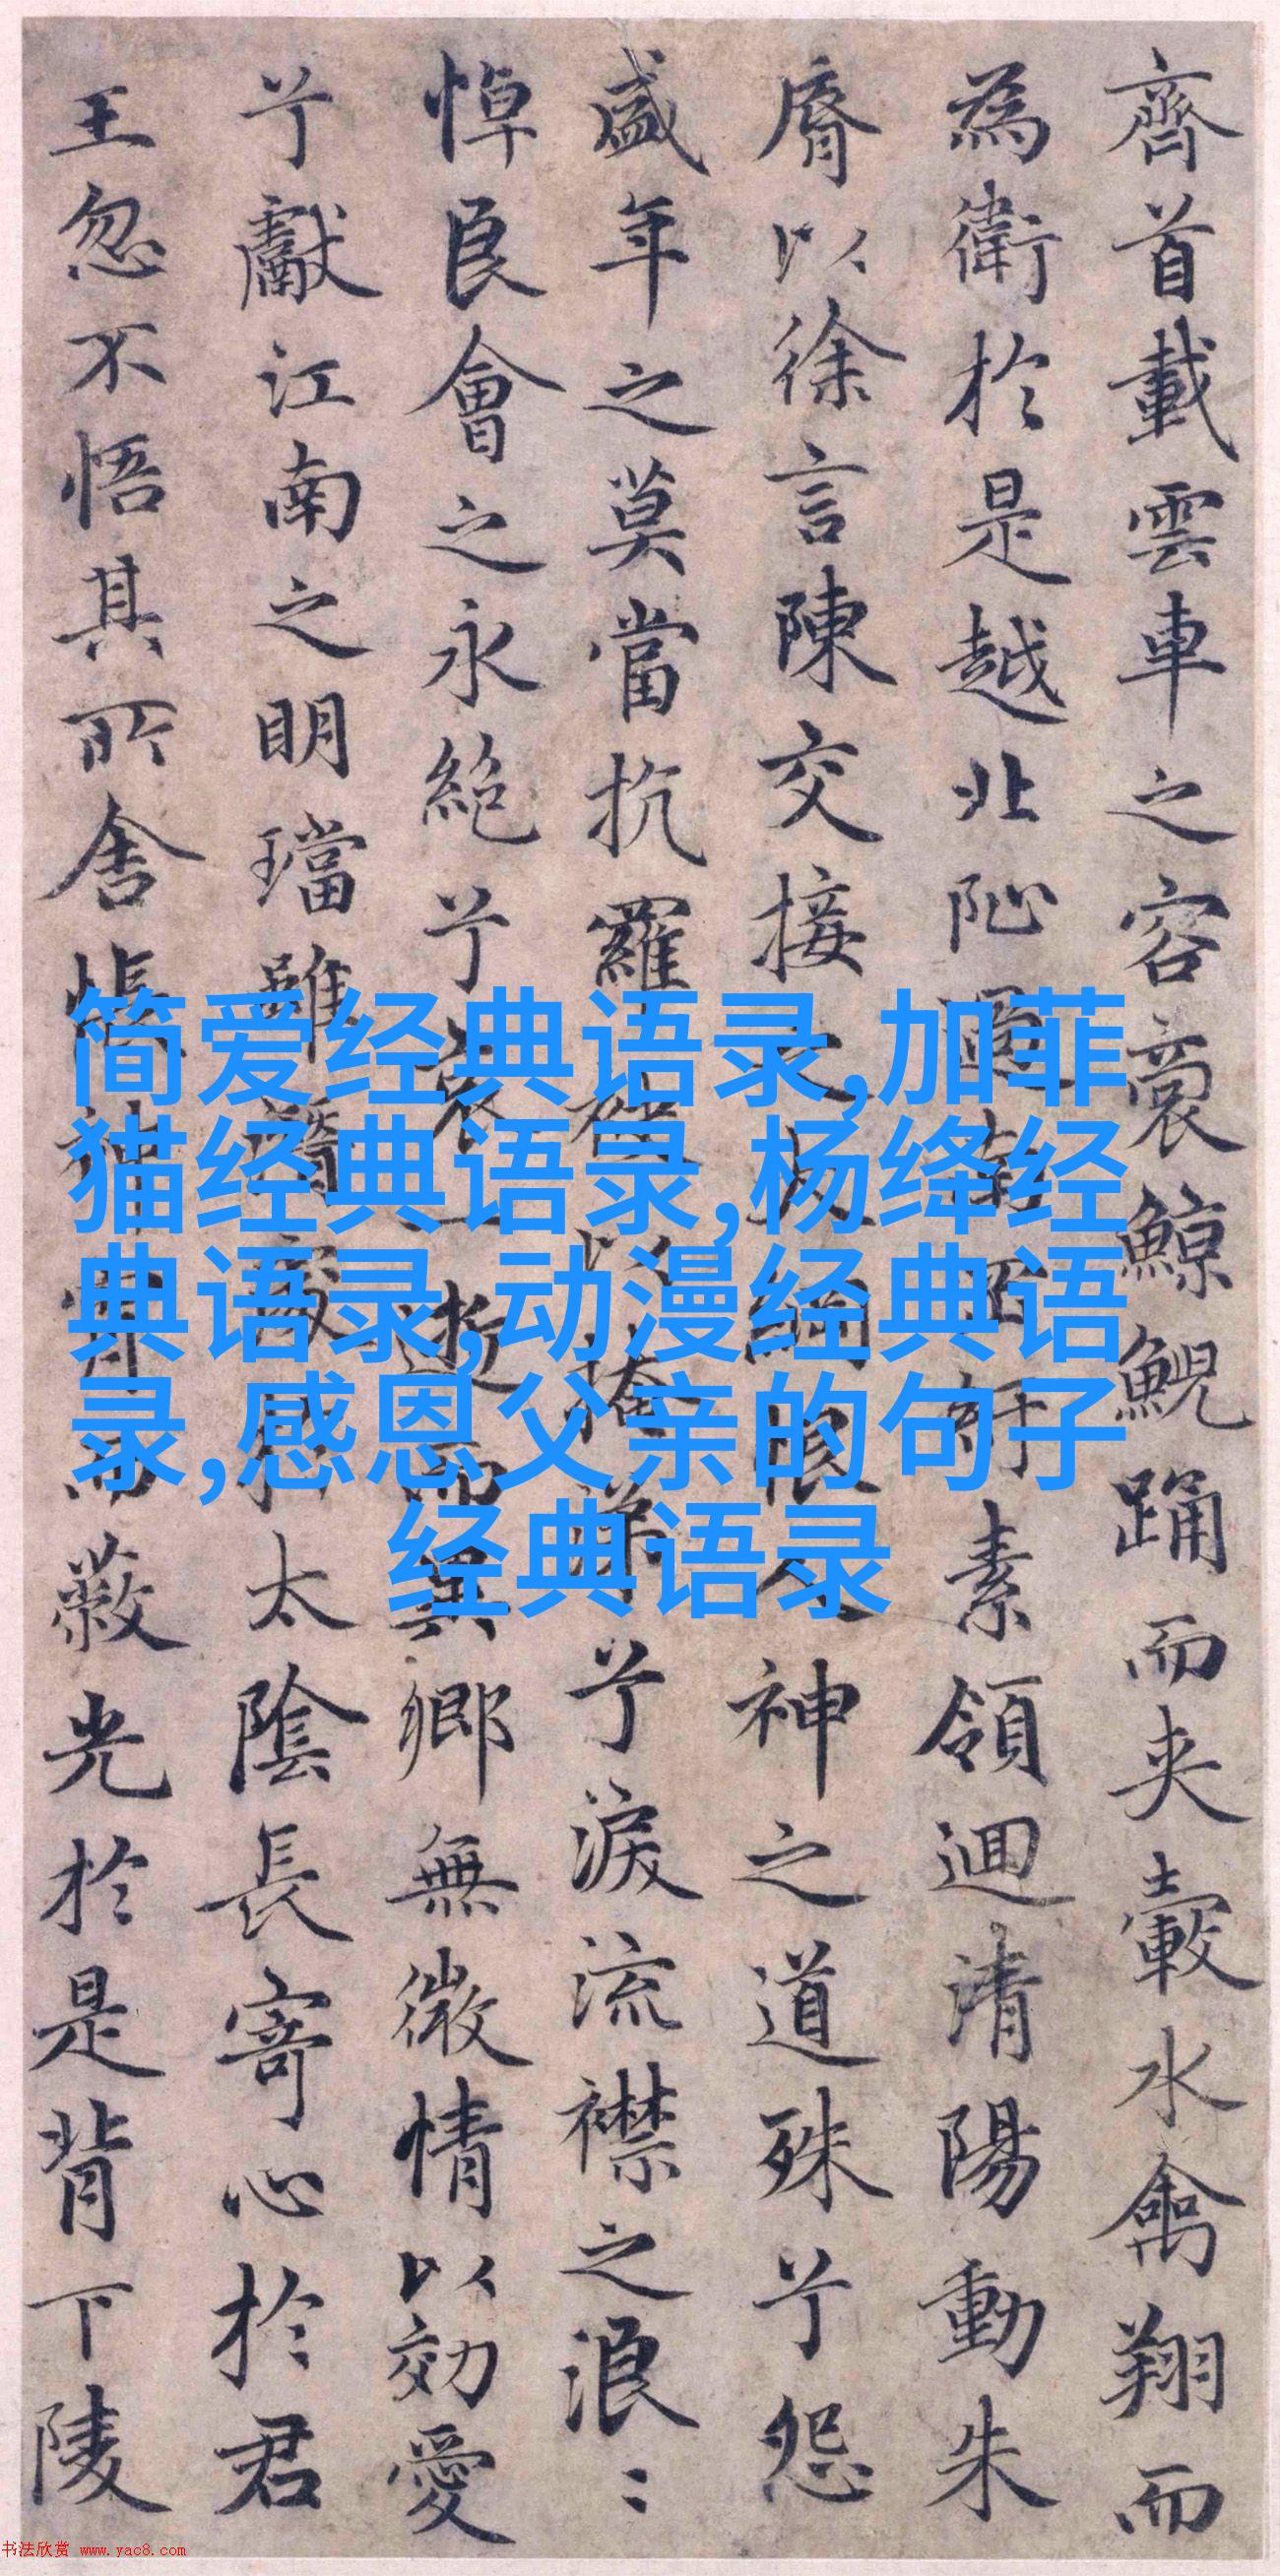 齊首載雲車之容裔鯨鯢踊而夾轂水禽翔而
為衛於是越北阯過南岡紆素領迴清陽動朱
脣以徐言陳交接之大綱恨人神之道殊兮怨
盛年之莫當抗羅袂以掩涕兮淚流襟之浪〻
悼良會之永絶兮哀一逝而異鄉無微情以効愛
兮獻江南之明璫雖潛處於太陰長寄心於君
王忽不悟其所舍悵神宵而蔽光於是背下陵
简爱经典语录,加菲
猫经典语录,杨绛经
典语录,动漫经典语
录,感恩父亲的句子
经典语录
书法欣赏 www.yac8.com